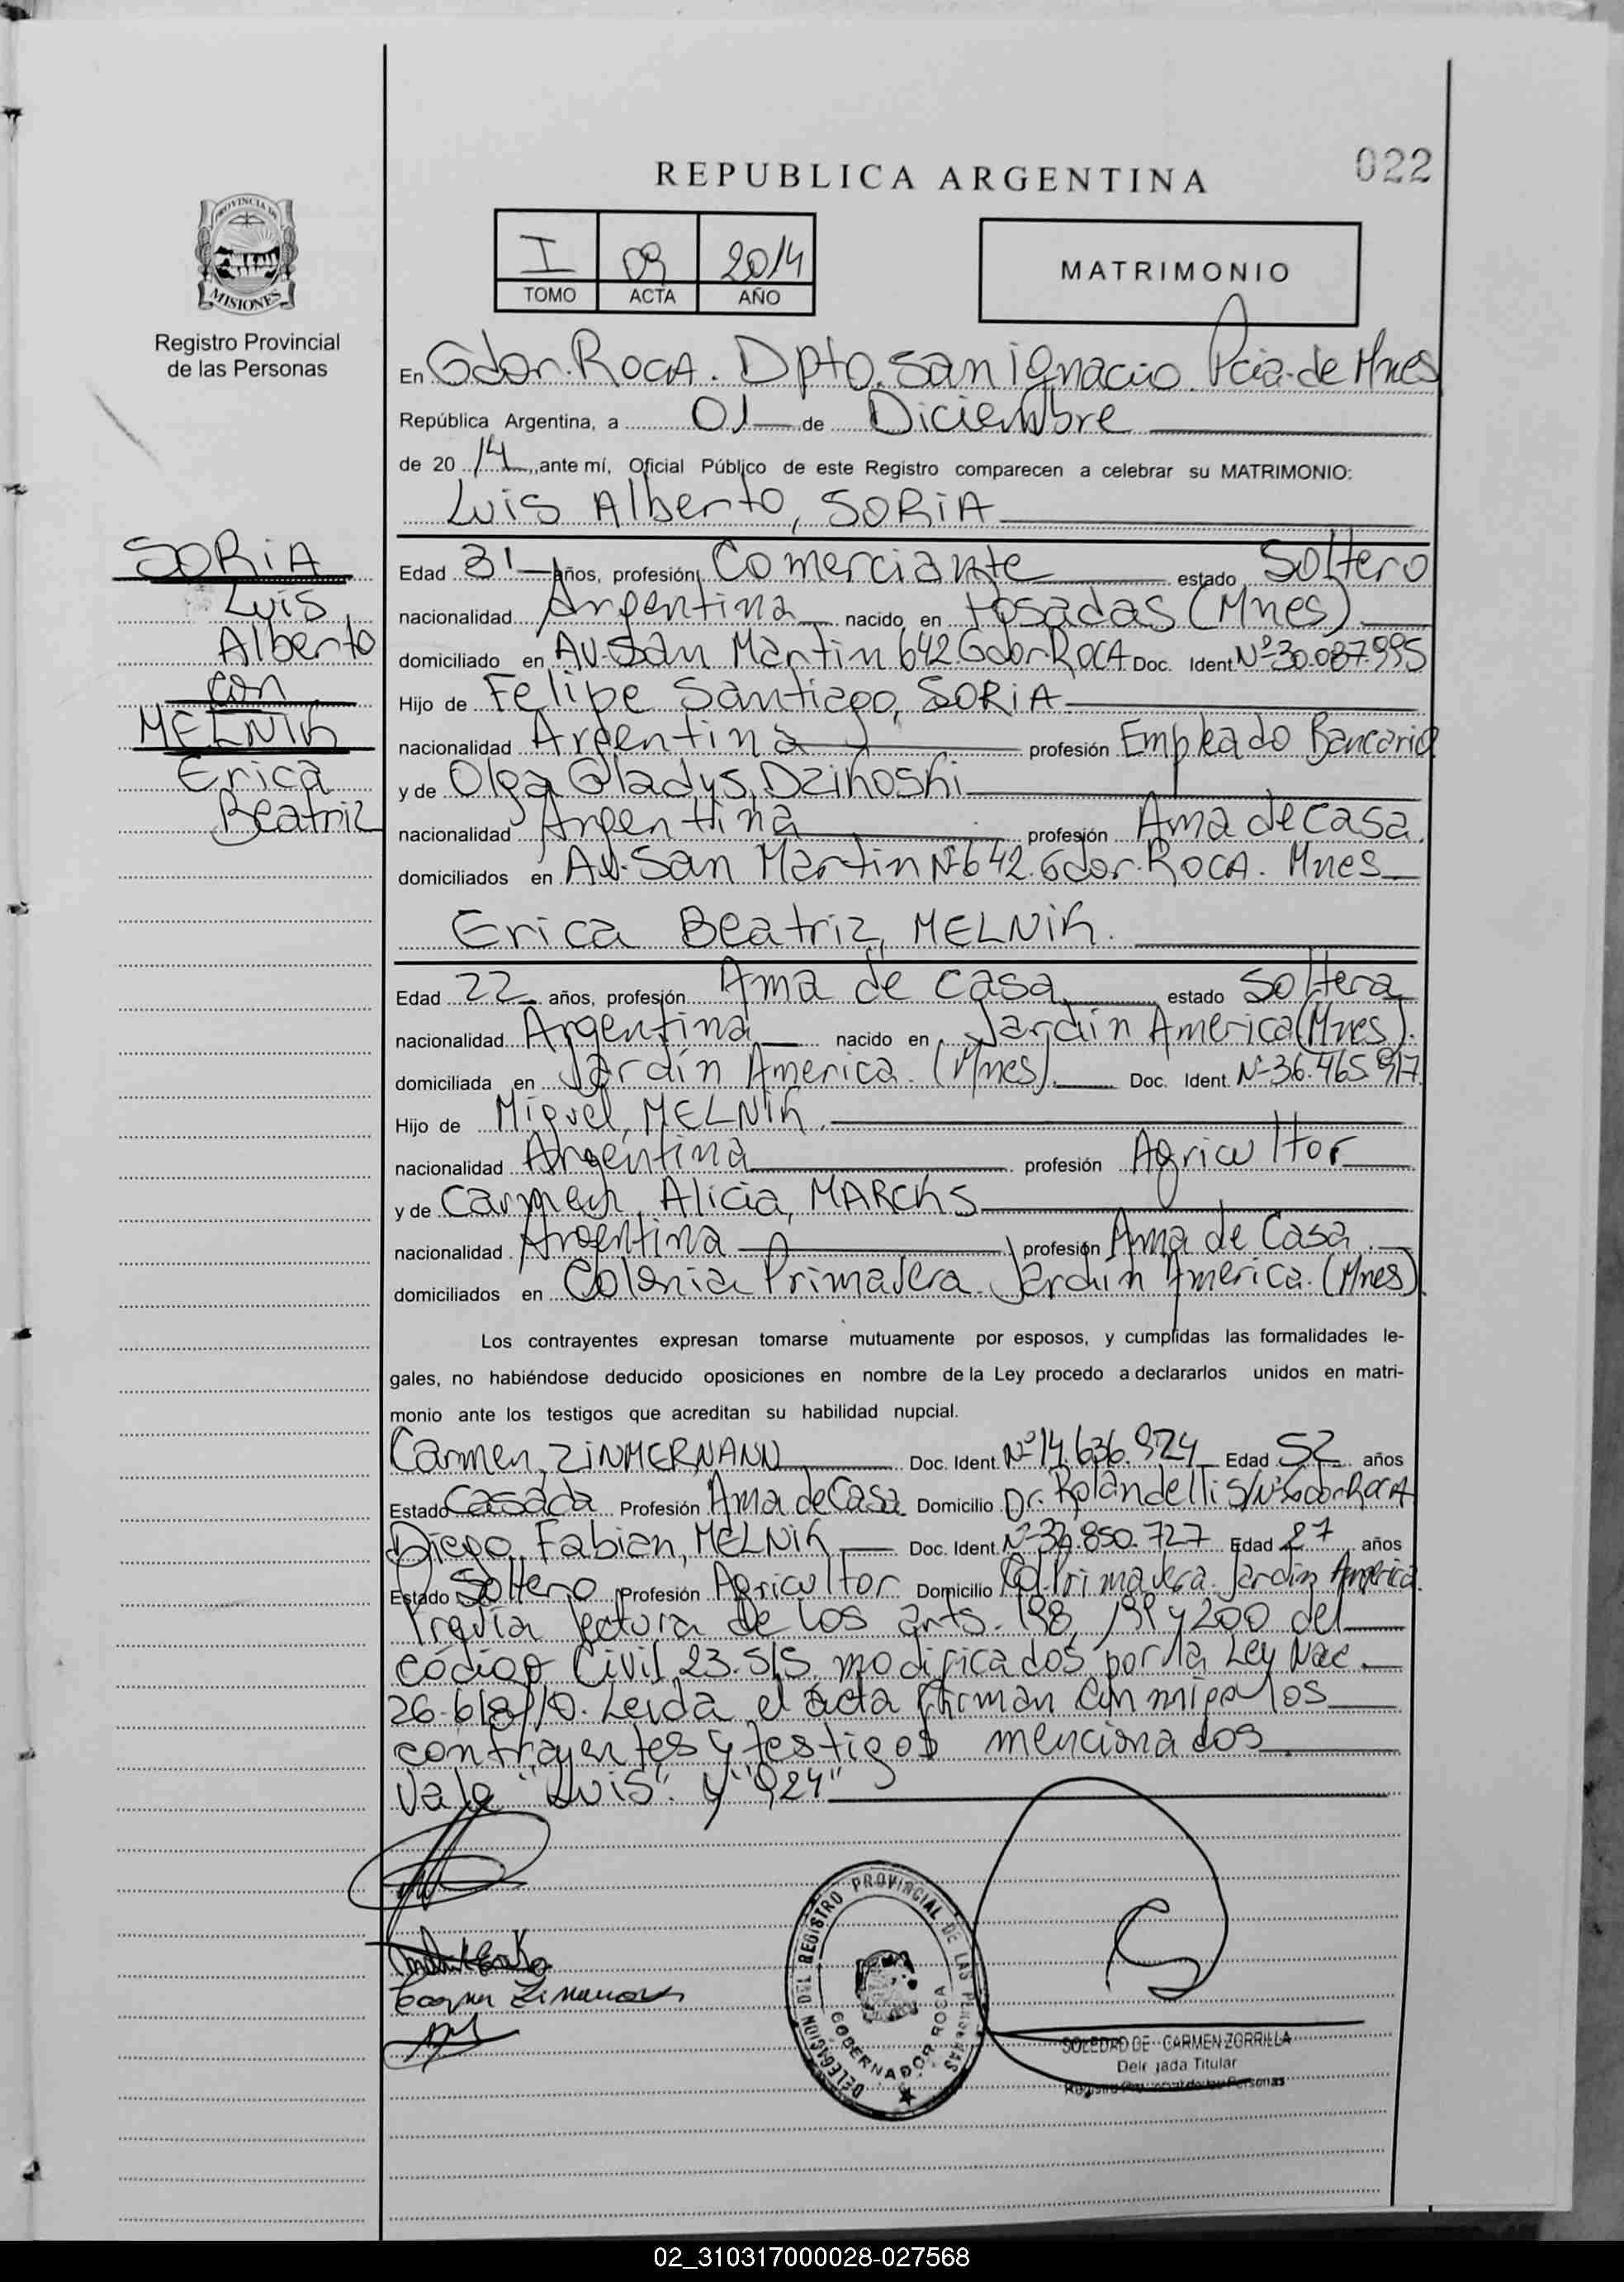 022
REPUBLICA ARGENTINA
PROVINCIA DE
MISIONES
Registro Provincial
de las Personas
I 09 2014
TOMO ACTA AÑO
MATRIMONIO
En Gdor. ROCA. Dpto. San Ignacio. Pcia. de Mnes
República Argentina, a 01 de Diciembre
de 20 14, ante mí, Oficial Público de este Registro comparecen a celebrar su MATRIMONIO:
Luis Alberto, SORiA
SORiA
Luis
Alberto
con
MELNIK
Erica
Beatriz
Edad 31 años, profesión Comerciante estado Soltero
nacionalidad Argentina nacido en Posadas (Mnes)
domiciliado en Av. San Martin 642 Gdor ROCA Doc. Ident. Nº 30.087.995
Hijo de Felipe Santiago, SORiA
nacionalidad Argentina profesión Empleado Bancario
y de Olga Gladys, Dzikoski
nacionalidad Argentina profesión Ama de Casa.
domiciliados en Av. San Martin Nº 642. Gdor. ROCA. Mnes
Erica Beatriz, MELNiK.
Edad 22 años, profesión Ama de casa estado Soltera
nacionalidad Argentina nacido en Jardin America (Mnes).
domiciliada en Jardín America. (Mnes). Doc. Ident. Nº 36.465.917
Hijo de Miguel, MELNiK.
nacionalidad Argentina profesión Agricultor
y de Carmen Alicia, MARCKS
nacionalidad Argentina profesión Ama de Casa.
domiciliados en Colonia Primavera. Jardin America. (Mnes)
Los contrayentes expresan tomarse mutuamente por esposos, y cumplidas las formalidades le-
gales, no habiéndose deducido oposiciones en nombre de la Ley procedo a declararlos unidos en matri-
monio ante los testigos que acreditan su habilidad nupcial.
Carmen, ZiNMERNANN Doc. Ident. Nº 14.636.924 Edad 52 años
Estado Casada Profesión Ama de Casa Domicilio Dr. Rolandelli S/Nº Gdor ROCA
Diego Fabian, MELNiK Doc. Ident. Nº 32.850.727 Edad 27 años
Estado Soltero Profesión Agricultor Domicilio Col. Primavera. Jardin America.
Previa lectura de los arts. 198, 199 y 200 del
código Civil 23.515 modificados por la Ley Nac.
26.618/10. Leida el acta firman conmigo los
contrayentes y testigos mencionados.
Vale "Luis" y "924"
Carmen Zimermann
DELEGACION DEL REGISTRO PROVINCIAL DE LAS PERSONAS
GOBERNADOR ROCA
SOLEDAD DE CARMEN ZORRILLA
Delegada Titular
Registro Provincial de las Personas
02_310317000028-027568